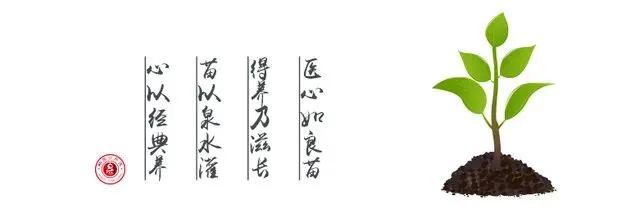 医心如良苗
得养乃滋长
苗以泉水灌
心以经典养